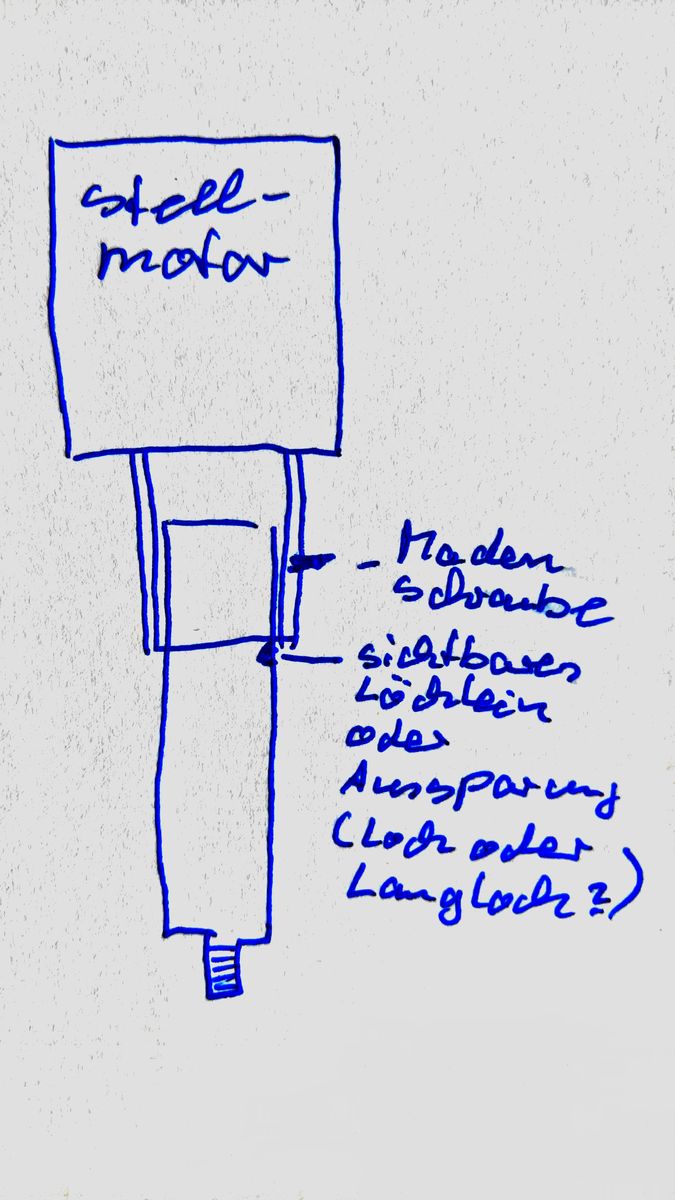 Stell-
motor
- Maden
schraube
sichtbares
Löchlein
oder
Aussparung
(Loch oder
Langloch?)